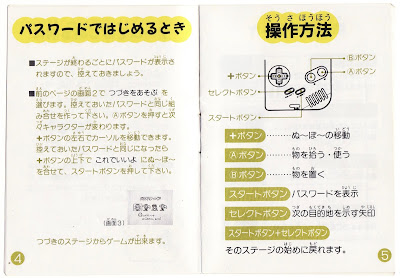 パスワードではじめるとき
■ステージが終わるごとにパスワードが表示さ
れますので、控えておきましょう。
■前のページの画面2で つづきをあそぶ を
選びます。控えておいたパスワードと同じ組
み合せを作って下さい。Ⓐボタンを押すと次
々キャラクターが変わります。
✚ボタンの左右でカーソルを移動できます。
控えておいたパスワードと同じになったら
✚ボタンの上下で これでいいよ にぬ〜ぼ〜
を合せて、スタートボタンを押して下さい。
(画面3)
つづきのステージからゲームが出来ます。
4
そうさほうほう
操作方法
Ⓑボタン
Ⓐボタン
✚ボタン
セレクトボタン
スタートボタン
✚ボタン ぬ〜ぼ〜の移動
Ⓐボタン 物を拾う・使う
Ⓑボタン 物を置く
スタートボタン パスワードを表示
セレクトボタン 次の目的地を示す矢印
スタートボタン+セレクトボタン
そのステージの始めに戻れます。
5